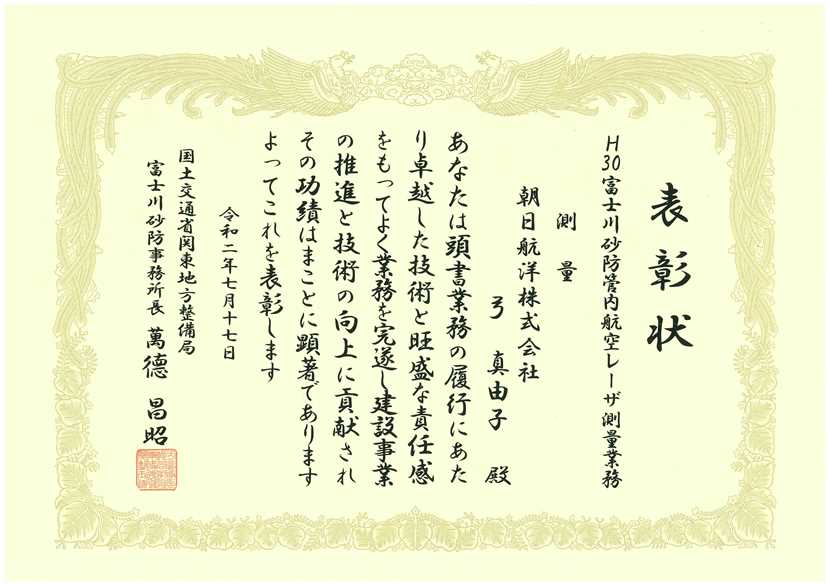 表彰状
H30富士川砂防管内航空レーザ測量業務
測量
朝日航洋株式会社
弓 真由子 殿
あなたは頭書業務の履行にあた
り卓越した技術と旺盛な責任感
をもってよく業務を完遂し建設事業
の推進と技術の向上に貢献され
その功績はまことに顕著であります
よってこれを表彰します
令和二年七月十七日
国土交通省関東地方整備局
富士川砂防事務所長 萬德 昌昭